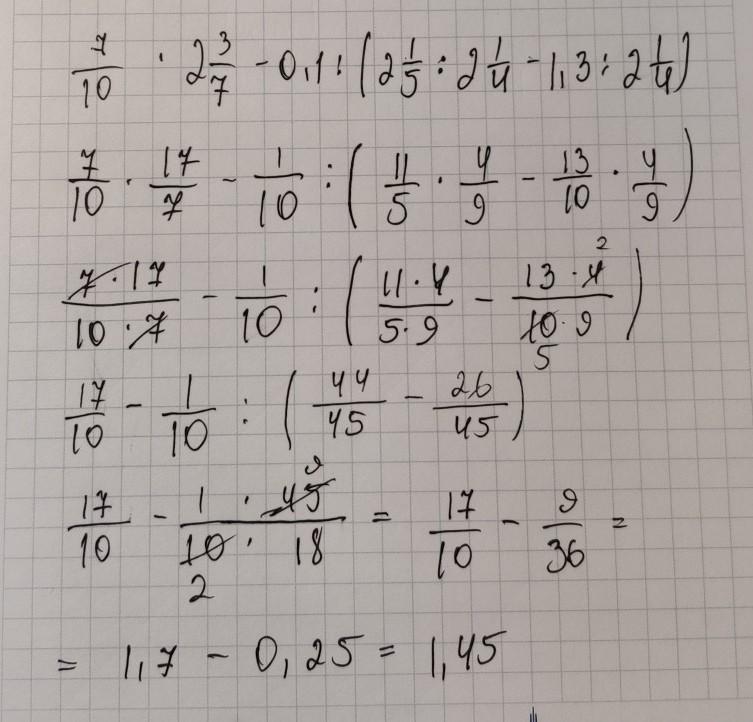 7/10 · 2 3/7 - 0,1 : (2 1/5 : 2 1/4 - 1,3 : 2 1/4)
7/10 · 17/7 - 1/10 : (11/5 · 4/9 - 13/10 · 4/9)
7·17/10·7 - 1/10 : (11·4/5·9 - 13·4 2/10·9 5)
17/10 - 1/10 : (44/45 - 26/45)
17/10 - 1 · 45 9/10 · 18 2 = 17/10 - 9/36 =
= 1,7 - 0,25 = 1,45